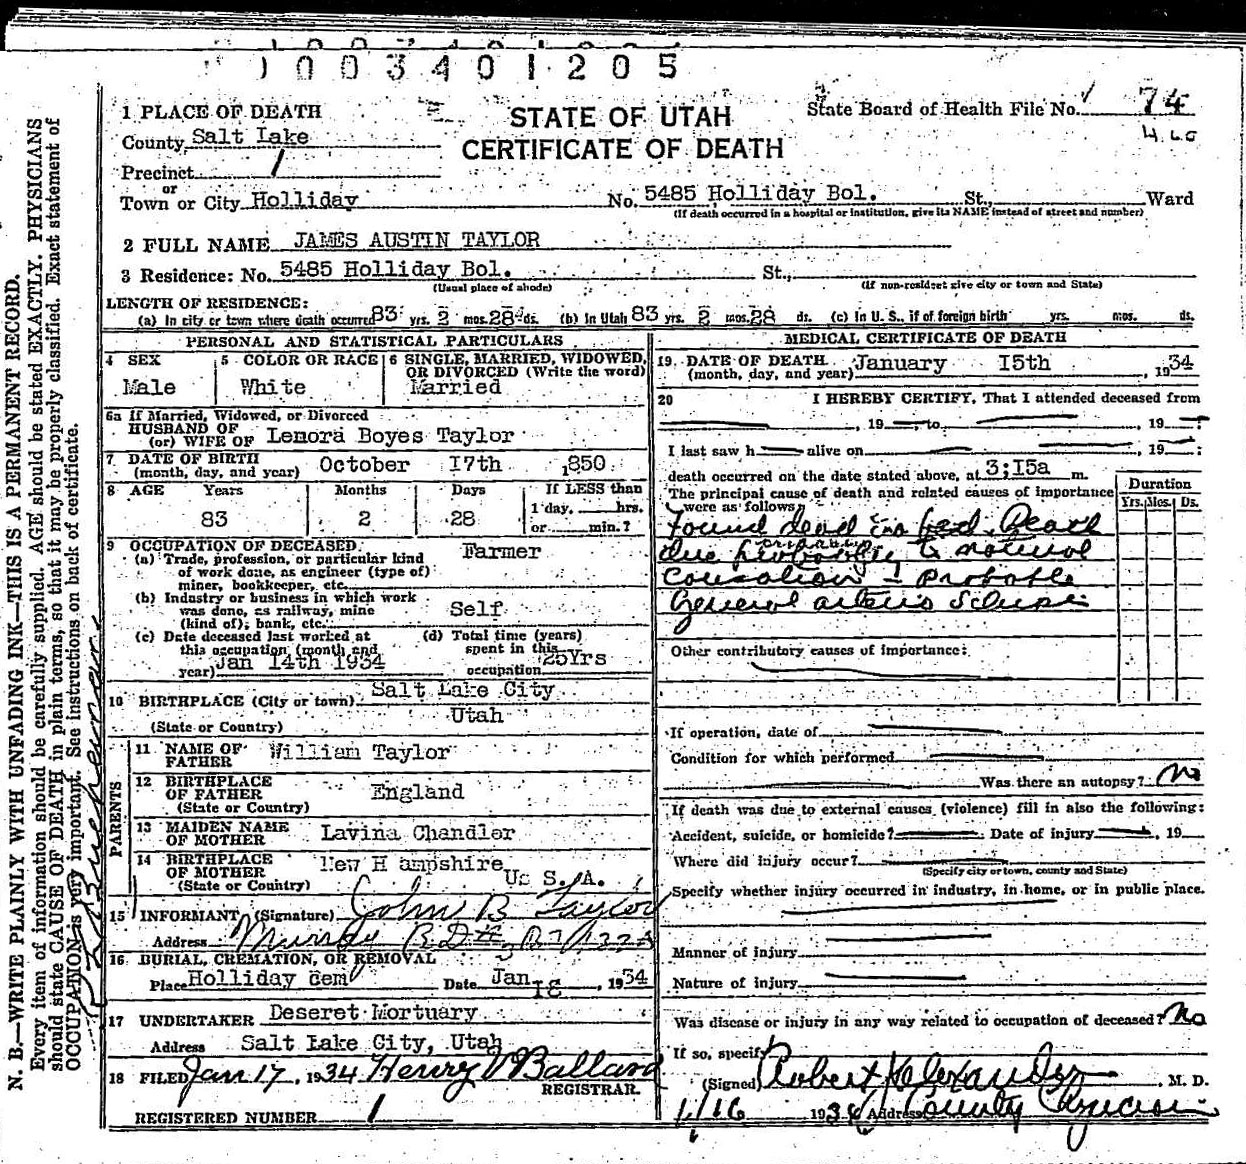 1003401205
1 PLACE OF DEATH
STATE OF UTAH
State Board of Health File No. 74
County Salt Lake
CERTIFICATE OF DEATH
4.60
Precinct 1
or
Town or City Holliday No. 5485 Holliday Bol. St., Ward
(If death occurred in a hospital or institution, give its NAME instead of street and number)
2 FULL NAME JAMES AUSTIN TAYLOR
3 Residence: No. 5485 Holliday Bol. St.,
(Usual place of abode) (If non-resident give city or town and State)
LENGTH OF RESIDENCE:
(a) In city or town where death occurred 83 yrs. 2 mos. 28 ds. (b) In Utah 83 yrs. 2 mos. 28 ds. (c) In U. S., if of foreign birth yrs. mos. ds.
PERSONAL AND STATISTICAL PARTICULARS
4 SEX 5 COLOR OR RACE 6 SINGLE, MARRIED, WIDOWED,
OR DIVORCED (Write the word)
Male White Married
6a If Married, Widowed, or Divorced
HUSBAND OF
(or) WIFE OF Lenora Boyes Taylor
7 DATE OF BIRTH
(month, day, and year) October 17th 1850
8 AGE Years Months Days If LESS than
1 day, hrs.
83 2 28 or min.?
9 OCCUPATION OF DECEASED.
(a) Trade, profession, or particular kind Farmer
of work done, as engineer (type of)
miner, bookkeeper, etc.
(b) Industry or business in which work
was done, as railway, mine Self
(kind of); bank, etc.
(c) Date deceased last worked at (d) Total time (years)
this occupation (month and spent in this
year) Jan 14th 1934 occupation 25Yrs
10 BIRTHPLACE (City or town) Salt Lake City
Utah
(State or Country)
PARENTS
11 NAME OF
FATHER William Taylor
12 BIRTHPLACE
OF FATHER England
(State or Country)
13 MAIDEN NAME
OF MOTHER Lavina Chandler
14 BIRTHPLACE
OF MOTHER New H ampshire
(State or Country) U. S. A.
15 INFORMANT (Signature) John B Taylor
Address Murray R.D.#
16 BURIAL, CREMATION, OR REMOVAL
Place Holliday Cem Date Jan 18, 1934
17 UNDERTAKER Deseret Mortuary
Address Salt Lake City, Utah
18 FILED Jan 17, 1934 Henry V Ballard
REGISTRAR.
REGISTERED NUMBER 1
MEDICAL CERTIFICATE OF DEATH
19 DATE OF DEATH January 15th
(month, day, and year) , 1934
20 I HEREBY CERTIFY, That I attended deceased from
, 19 to , 19 ;
I last saw h alive on , 19 ;
death occurred on the date stated above, at 3;15a m.
The principal cause of death and related causes of importance
were as follows:
Duration
Yrs. Mos. Ds.
Found dead in bed. Death
due probably to natural
causation - Probable
General arterio Sclerosis
Other contributory causes of importance:
If operation, date of
Condition for which performed
Was there an autopsy? No
If death was due to external causes (violence) fill in also the following:
Accident, suicide, or homicide? Date of injury , 19
Where did injury occur?
(Specify city or town, county and State)
Specify whether injury occurred in industry, in home, or in public place.
Manner of injury
Nature of injury
Was disease or injury in any way related to occupation of deceased? No
If so, specify
(Signed) Robert Alexander , M. D.
1/16 1934 Address County Physician
N. B.—WRITE PLAINLY WITH UNFADING INK—THIS IS A PERMANENT RECORD.
Every item of information should be carefully supplied. AGE should be stated EXACTLY. PHYSICIANS
should state CAUSE OF DEATH in plain terms, so that it may be properly classified. Exact statement of
OCCUPATION is very important. See instructions on back of certificate.